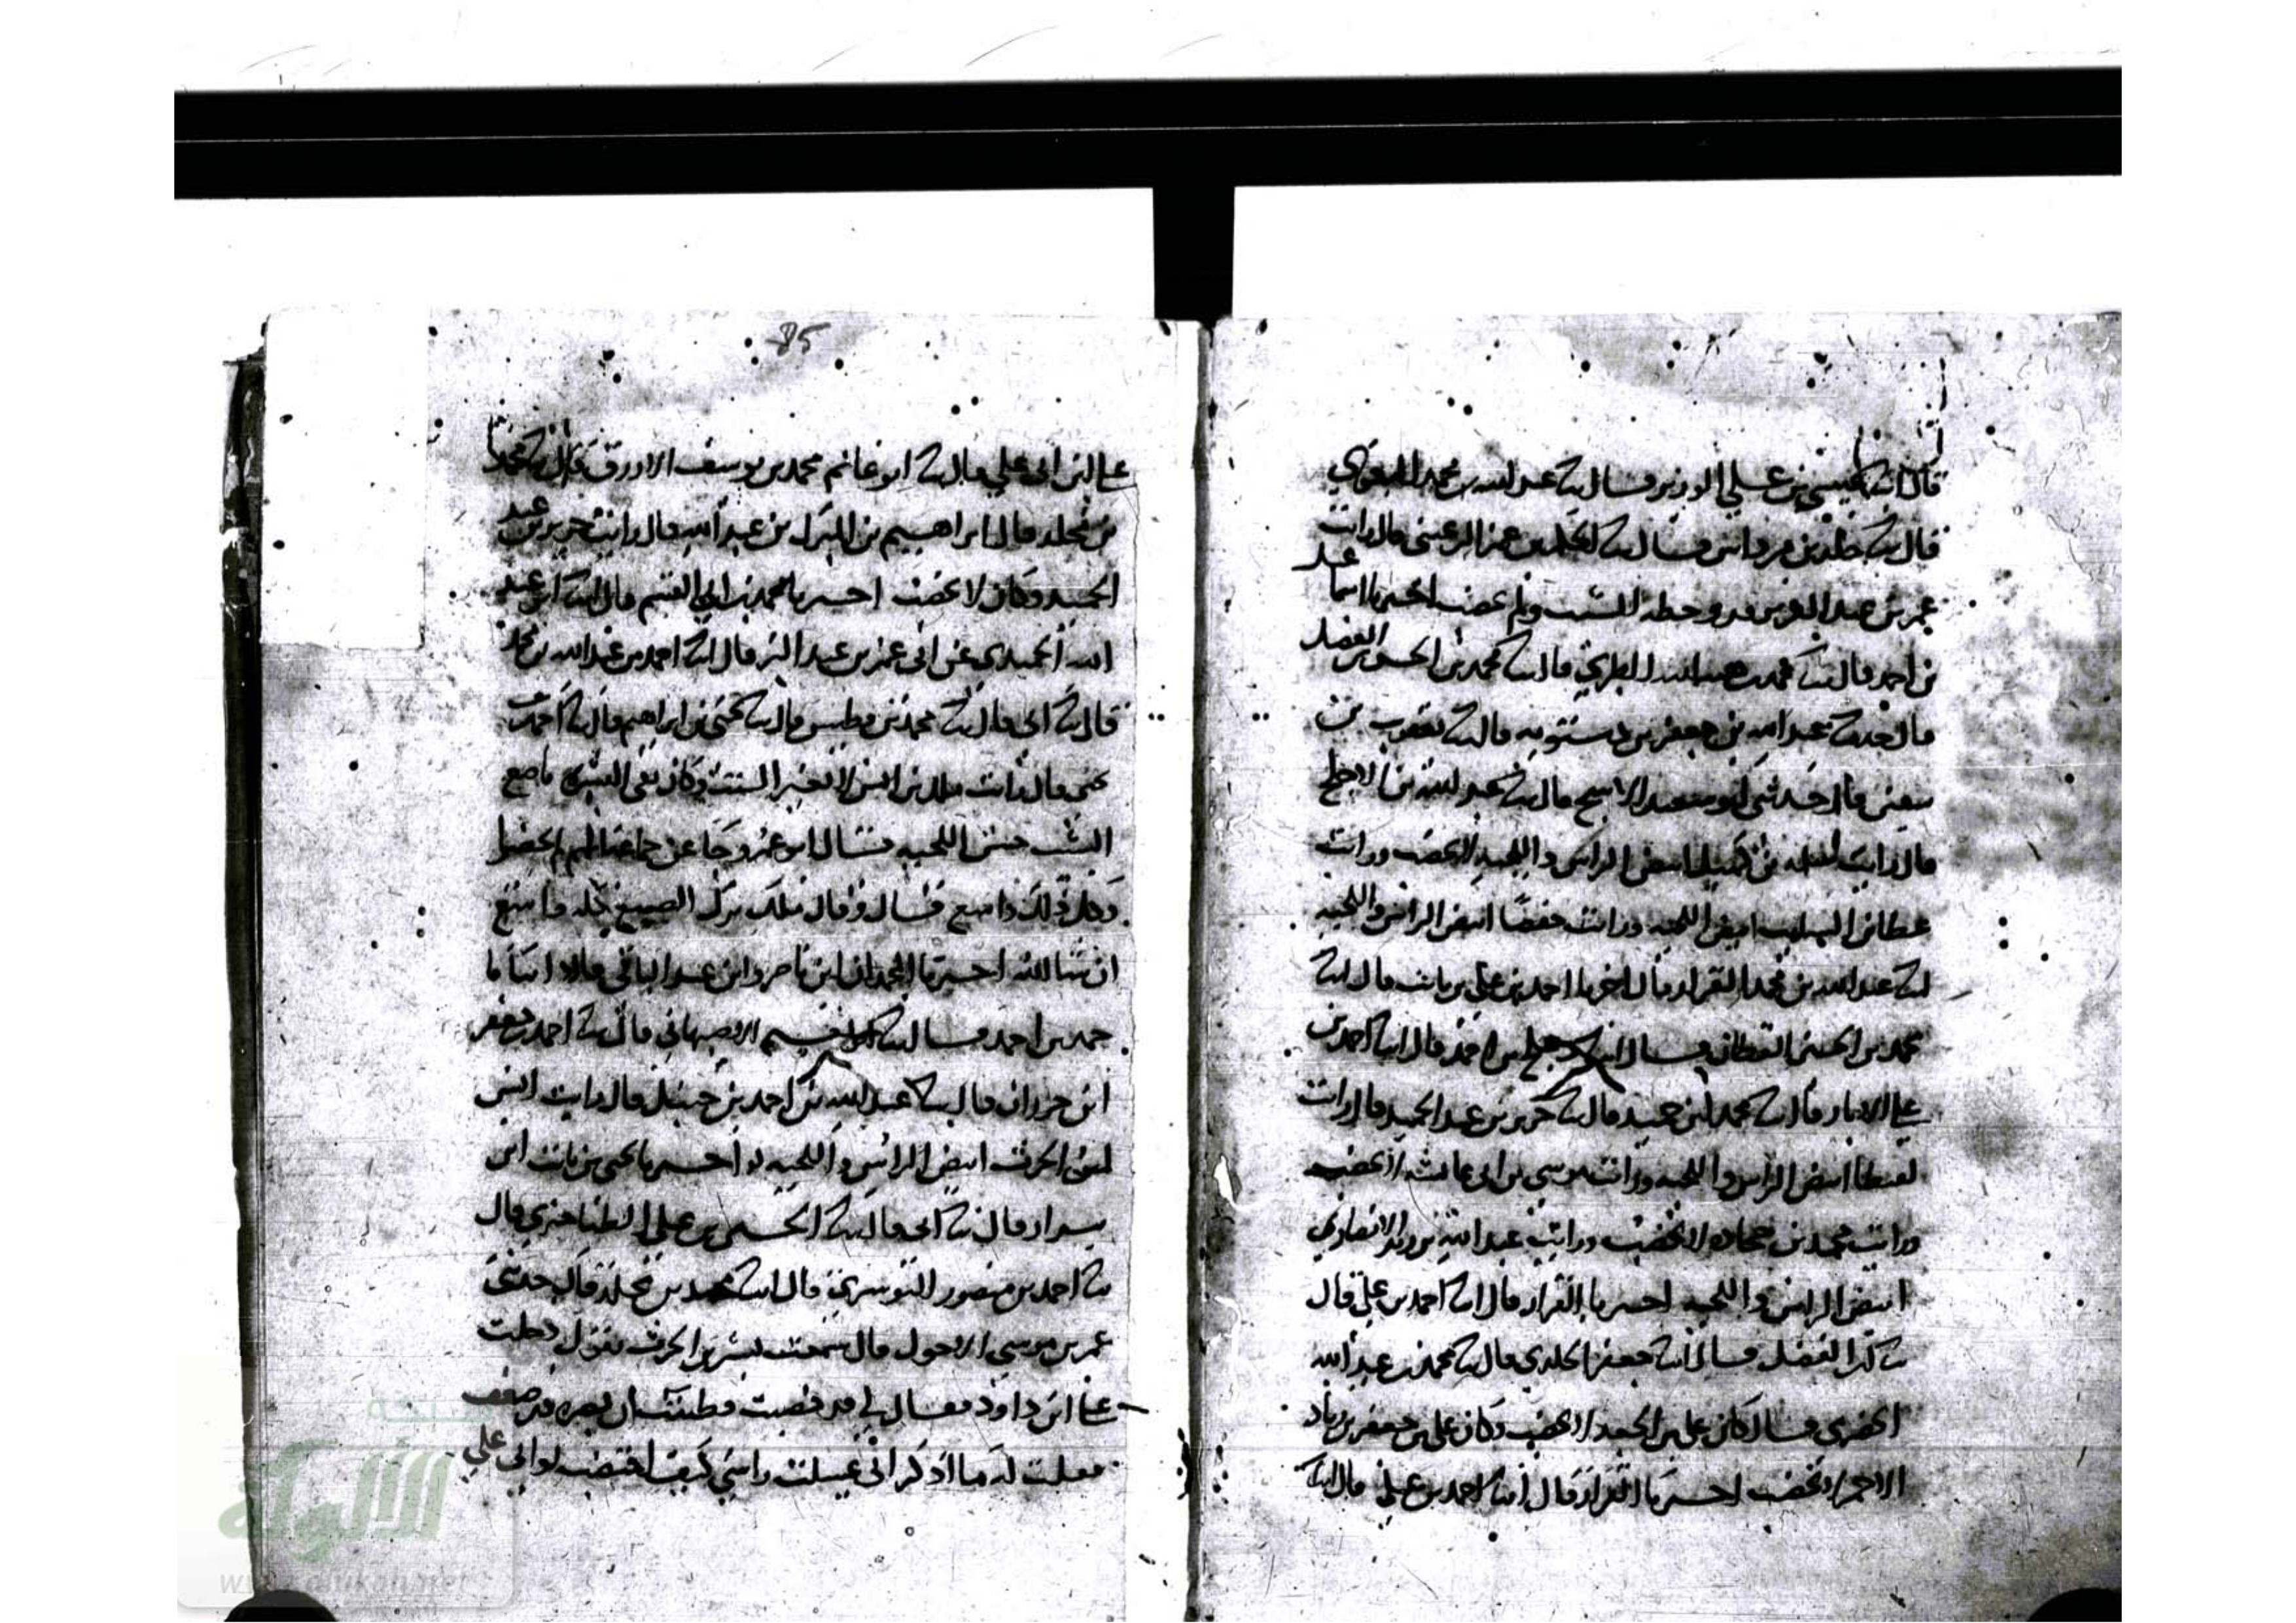 قال انبا عيسى بن علي الوزير قال ثنا عبد الله بن محمد البغوي
قال ثنا خلد بن مرداس قال ثنا الحكم بن عمر الرعيني قال رايت
عمر بن عبد العزيز وخطه الشيب ولم يخضب اخبرنا اسماعيل
بن احمد قال ثنا محمد بن هبة الله الطبري قال ثنا محمد بن الحسين بن الفضل
قال حدثنا عبد الله بن جعفر بن درستويه قال ثنا يعقوب بن
سفين قال حدثني ابو سعيد الاشج قال ثنا عبد الله بن الاجلح
قال رايت سلمة بن كهيل ابيض الراس واللحية لا يخضب ورايت
عطا بن السايب ابيض اللحية ورايت حفصا ابيض الراس واللحية
انبا عبد الله بن محمد القزاز قال اخبرنا احمد بن علي بن ثابت قال انبا
محمد بن الحسين القطان قال انبا دعلج بن احمد قال انبا احمد بن
علي الابار قال ثنا محمد بن حميد قال ثنا جرير بن عبد الحميد قال رايت
لقيطا ابيض الراس واللحية ورايت موسى بن ابي عايشة لا يخضب
ورايت محمد بن جحادة لا يخضب ورايت عبد الله بن يزيد الانصاري
ابيض الراس واللحية اخبرنا القزاز قال انبا احمد بن علي قال
ثنا ابن الفضل قال انبا جعفر الخلدي قال ثنا محمد بن عبد الله
الحضرمي قال كان علي بن الجعد لا يخضب وكان علي بن جعفر بن زياد
الاحمر لا يخضب اخبرنا القزاز قال انبا احمد بن علي قال انبا
علي بن ابي علي قال ثنا ابو غانم محمد بن يوسف الازرق قال ثنا محمد
بن مخلد قال ابراهيم بن عبد الله قال رايت جرير بن عبد
الحميد وكان لا يخضب اخبرنا محمد بن ابي القسم قال انبا ابو عبد
الله الحميدي عن ابي عمر بن عبد البر قال انبا احمد بن عبد الله بن محمد
قال ثنا ابي قال ثنا محمد بن فطيس قال ثنا يحيى بن ابراهيم قال ثنا احمد بن
يحيى قال رايت ملك بن انس لا يغير الشيب وكان نقي البشرة ناصع
الشيب حسن اللحية قال ابو عمر وجا عن جماعة انهم لم يخضبوا
وكل ذلك واسع قال وقال ملك ترك الصبغ كله واسع
ان شا الله اخبرنا المحمدان ابن ناصر وابن عبد الباقي قالا انبانا
حمد بن احمد قال انبا ابو نعيم الاصبهاني قال ثنا احمد بن جعفر
ابن حمدان قال ثنا عبد الله بن احمد بن حنبل قال رايت
بشر بن الحرث ابيض الراس واللحية اخبرنا يحيى بن ثابت ابن
بندار قال ثنا ابي قال ثنا الحسين بن علي الطناجيري قال
ثنا احمد بن منصور النوشري قال انبا محمد بن مخلد قال حدثني
عمر بن موسى الاحول قال سمعت بشر بن الحرث يقول دخلت
علي ابن داود فقال لي قد خضبت فظننت ان بصره قد ضعف
فقلت له ما اذكر اني غسلت راسي كيف اختضب
85
شبكة
الألوكة
www.alukah.net